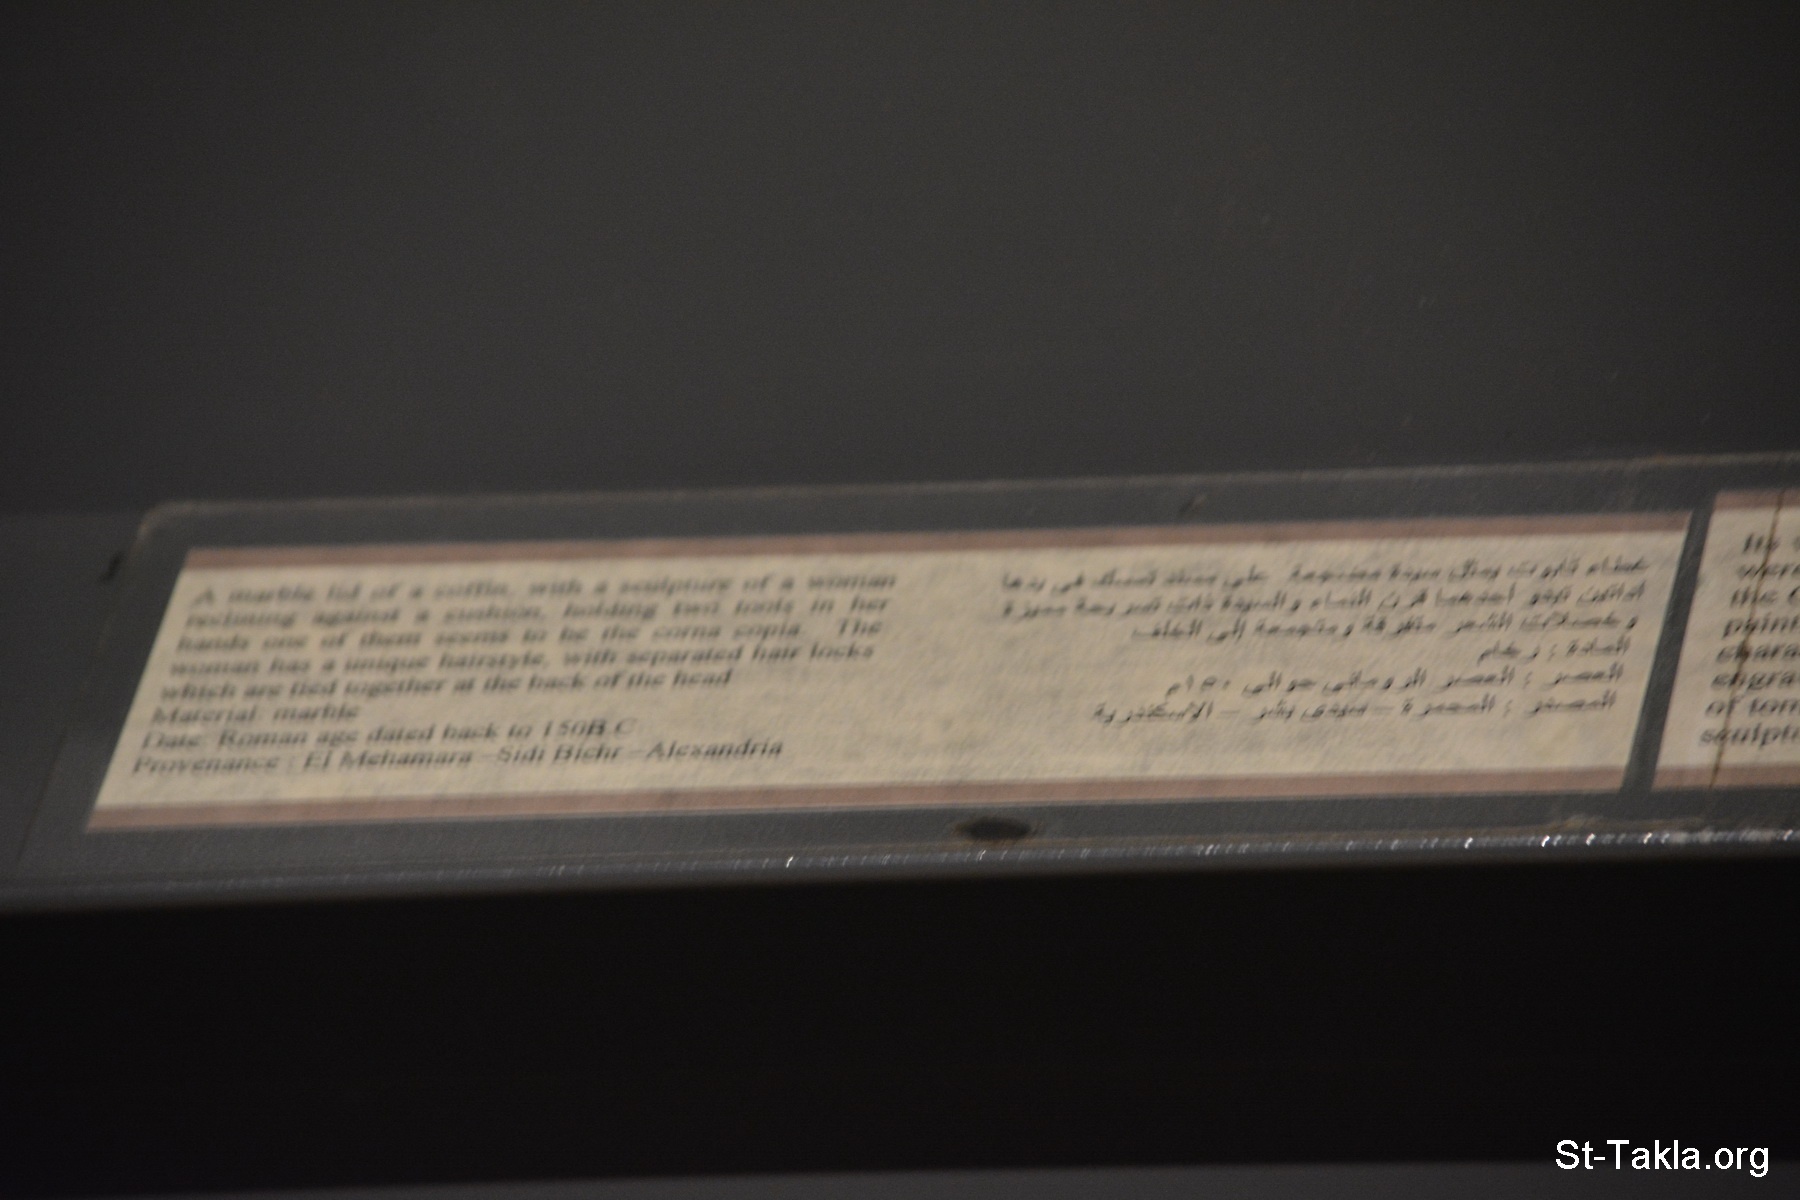 A marble lid of a coffin, with a sculpture of a woman
reclining against a cushion, holding two fruits in her
hands one of them seems to be the corna copia The
woman has a unique hairstyle, with separated hair locks
which are tied together at the back of the head
Material: marble
Date: Roman age dated back to 150B.C
Provenance : El Mehamara –Sidi Bishr –Alexandria
غطاء تابوت يمثل سيدة مضجعة على مسند تمسك فى يدها
و خصلات الشعر متفرقة و متجمعة إلى الخلف
المادة : رخام
العصر : العصر الرومانى حوالى ١٥٠م
المصدر : المعمرة – سيدى بشر – الاسكندرية
Its
were
the
paint
chara
engra
of tom
sculptu
St-Takla.org